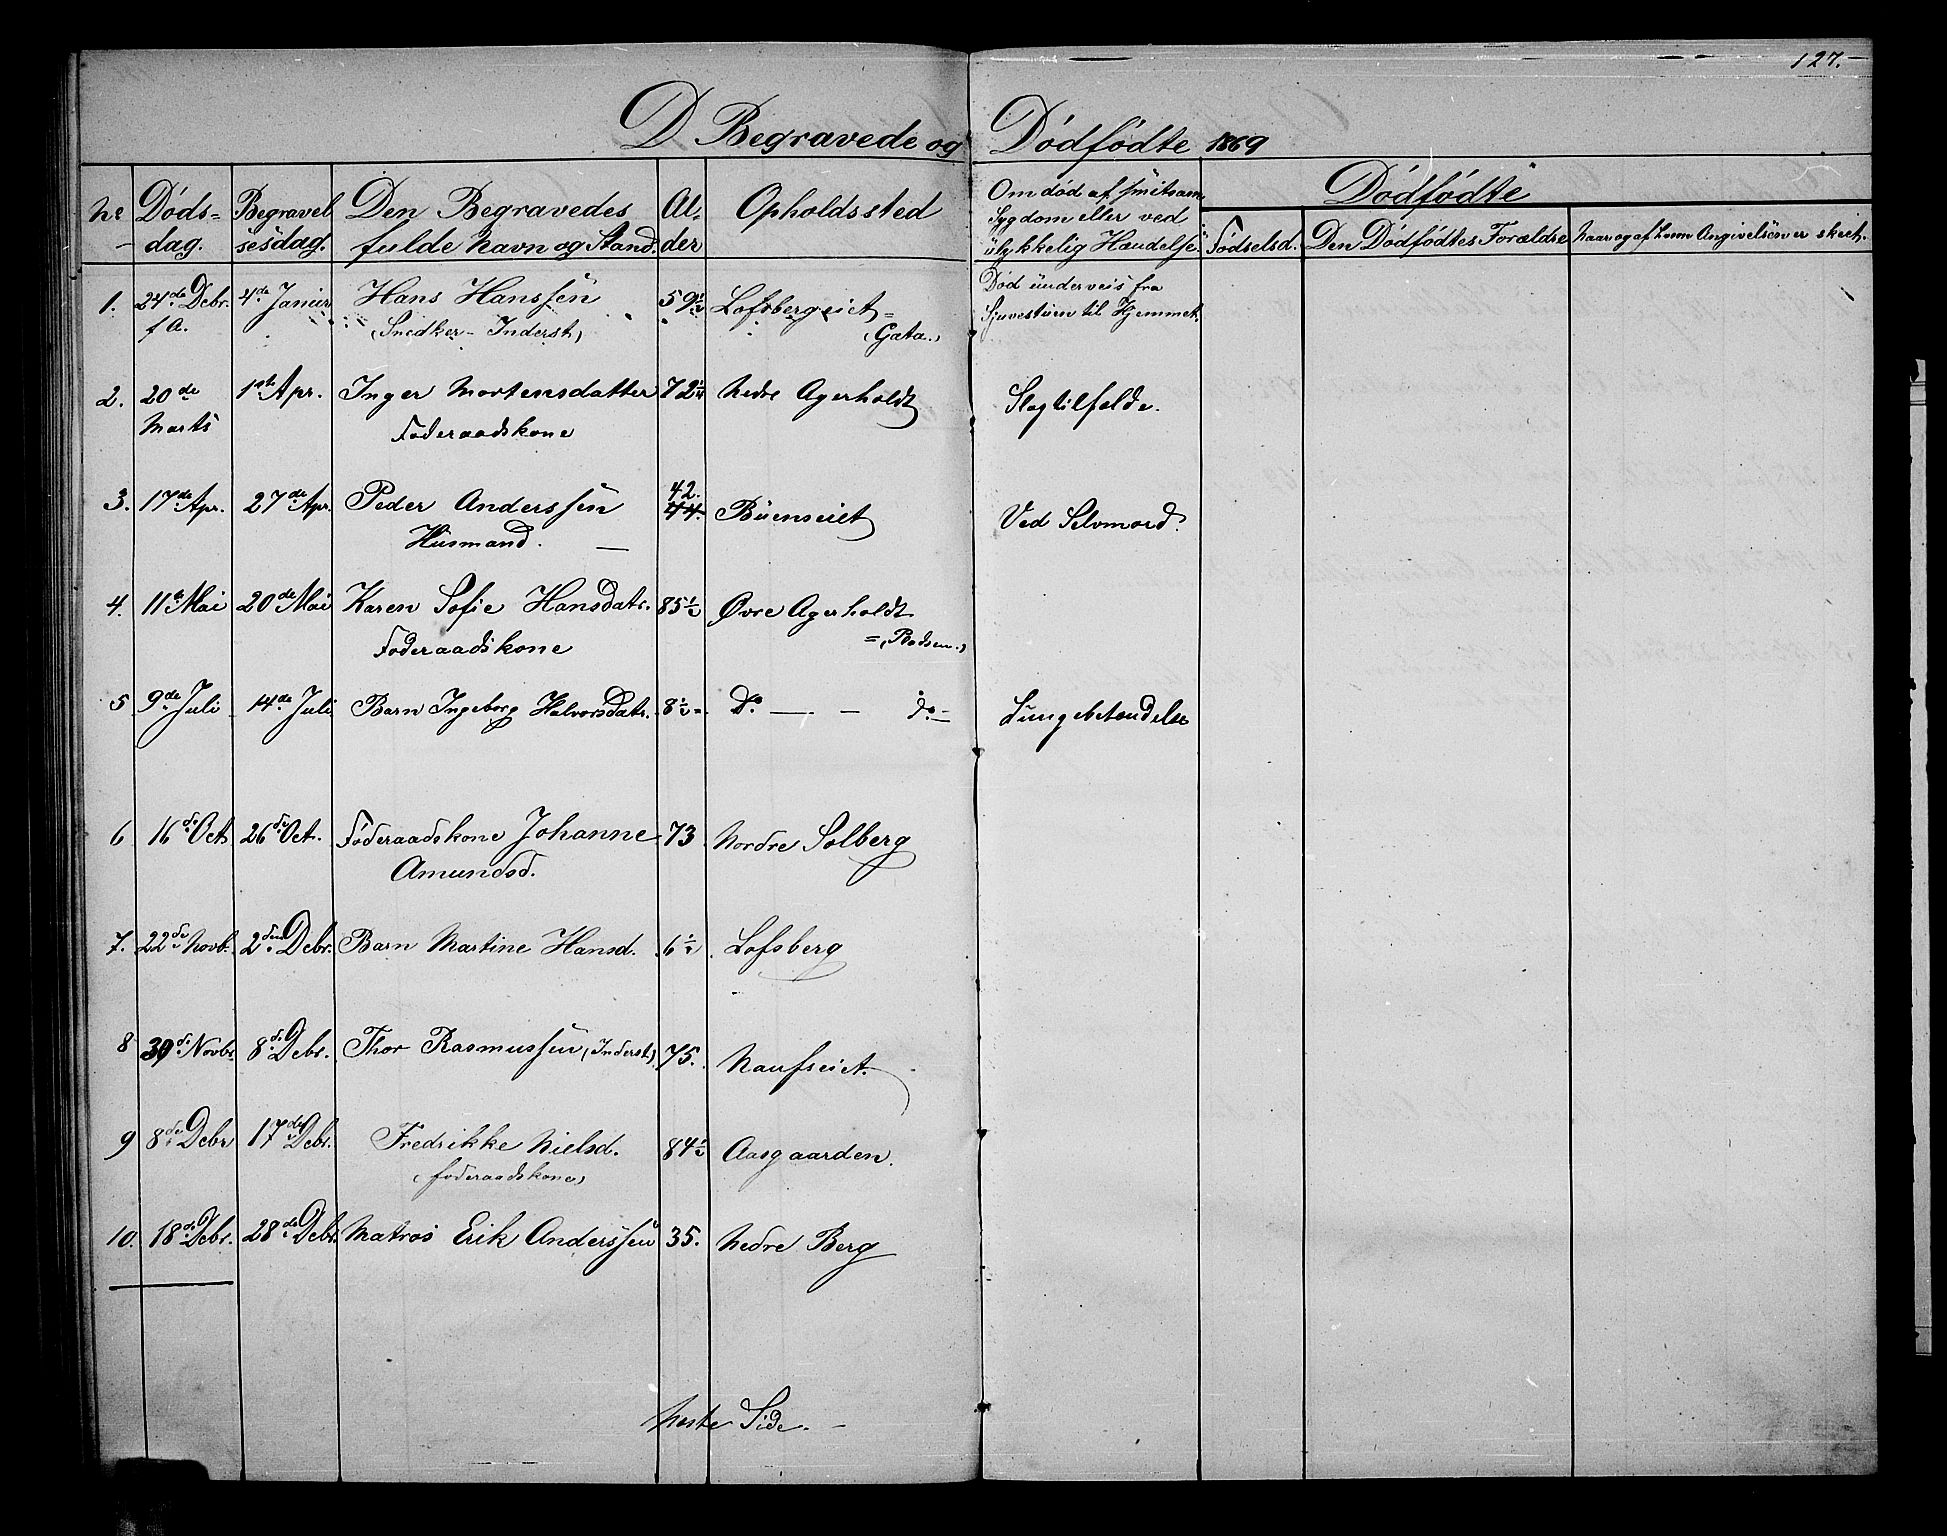 127.
D Begravede og Dødfødte 1869
No Dødsdag. Begravelsesdag. Den Begravedes fulde Navn og Stand. Alder Opholdssted Om død af smitsam Sygdom eller ved ulykkelig Hændelse Dødfødte
Fødselsd. Den Dødfødtes Forældre Naar og af hvem Angivelsen er skeet.
1. 24de Debr. 4de Januar Hans Hanssen 59½ Lofsbergeiet= Død underveis fra
f A. (Snedker - Inderst) (Gata.) til Hjemmet.
2. 20de 1ste Apr. Inger Mortensdatter 72¼ Nedre Agerholdt Slagtilfelde.
Marts Føderaadskone
3. 17de Apr. 27de Apr. Peder Anderssen 42. 44. Buenseiet Ved Selvmord.
Husmand. —
4. 11te Mai 20de Mai Karen Sofie Hansdatr. 85½ Øvre Agerholdt
Føderaadskone =
5 9de Juli 14de Juli Barn Ingeborg Halvorsdatr. 8½ = Do. — — do. = Lungebetændelse
6 16de Oct 26de Oct. Føderaadskone Johanne 73 Nordre Solberg
Amundsd.
7. 22de Novb. 2den Debr. Barn Martine Hansd. 6½ Lofsberg
8 30de Novbr. 8de Debr. Thor Rasmussen (Inderst) 75. Naufseiet.
9 8de Debr 17de Debr. Fredrikke Nielsd. 84½ Aasgaarden.
(føderaadskone)
10. 18de Debr. 28de Debr. Matros Erik Anderssen 35. Nedre Berg
Næste Side. —